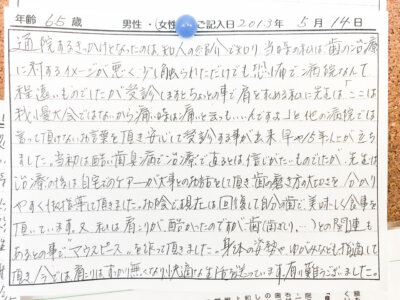 年齢 65歳 男性・女性 ご記入日 2013年 5月 14日
通院するきっかけとなったのは、知人の紹介で知り当時の私は歯の治療
に対するイメージが悪く少し触られただけでも恐怖で病院なんて
程遠いものでしたが受診しますとちょっとの事で肩を求める私に先生は「ここは
我慢大会ではないから痛い時は痛いと言ってもいいんですよ」と他の病院では
言って頂けないお言葉を頂き安心して受診する事が出来早や15年八か立ち
ました。当初は酷い歯臭病で治療で直るとは信じがたいものでしたが、先生は
治療の後は自宅のケアーが大事とのお話をして頂き歯の磨き方の大切さを分かり
やすく御指導して頂きました。お陰で現在は回復して自分の歯で美味しく食事を
頂いています。又、私は肩こりが酷かったのですが歯(歯ぎしり、…)との関連も
あるとの事でマウスピースを作って頂きました。身体の姿勢やゆがみなども指摘して
頂き今では肩こりはすっかり無くなり快適な生活を送っています。有り難うございました。